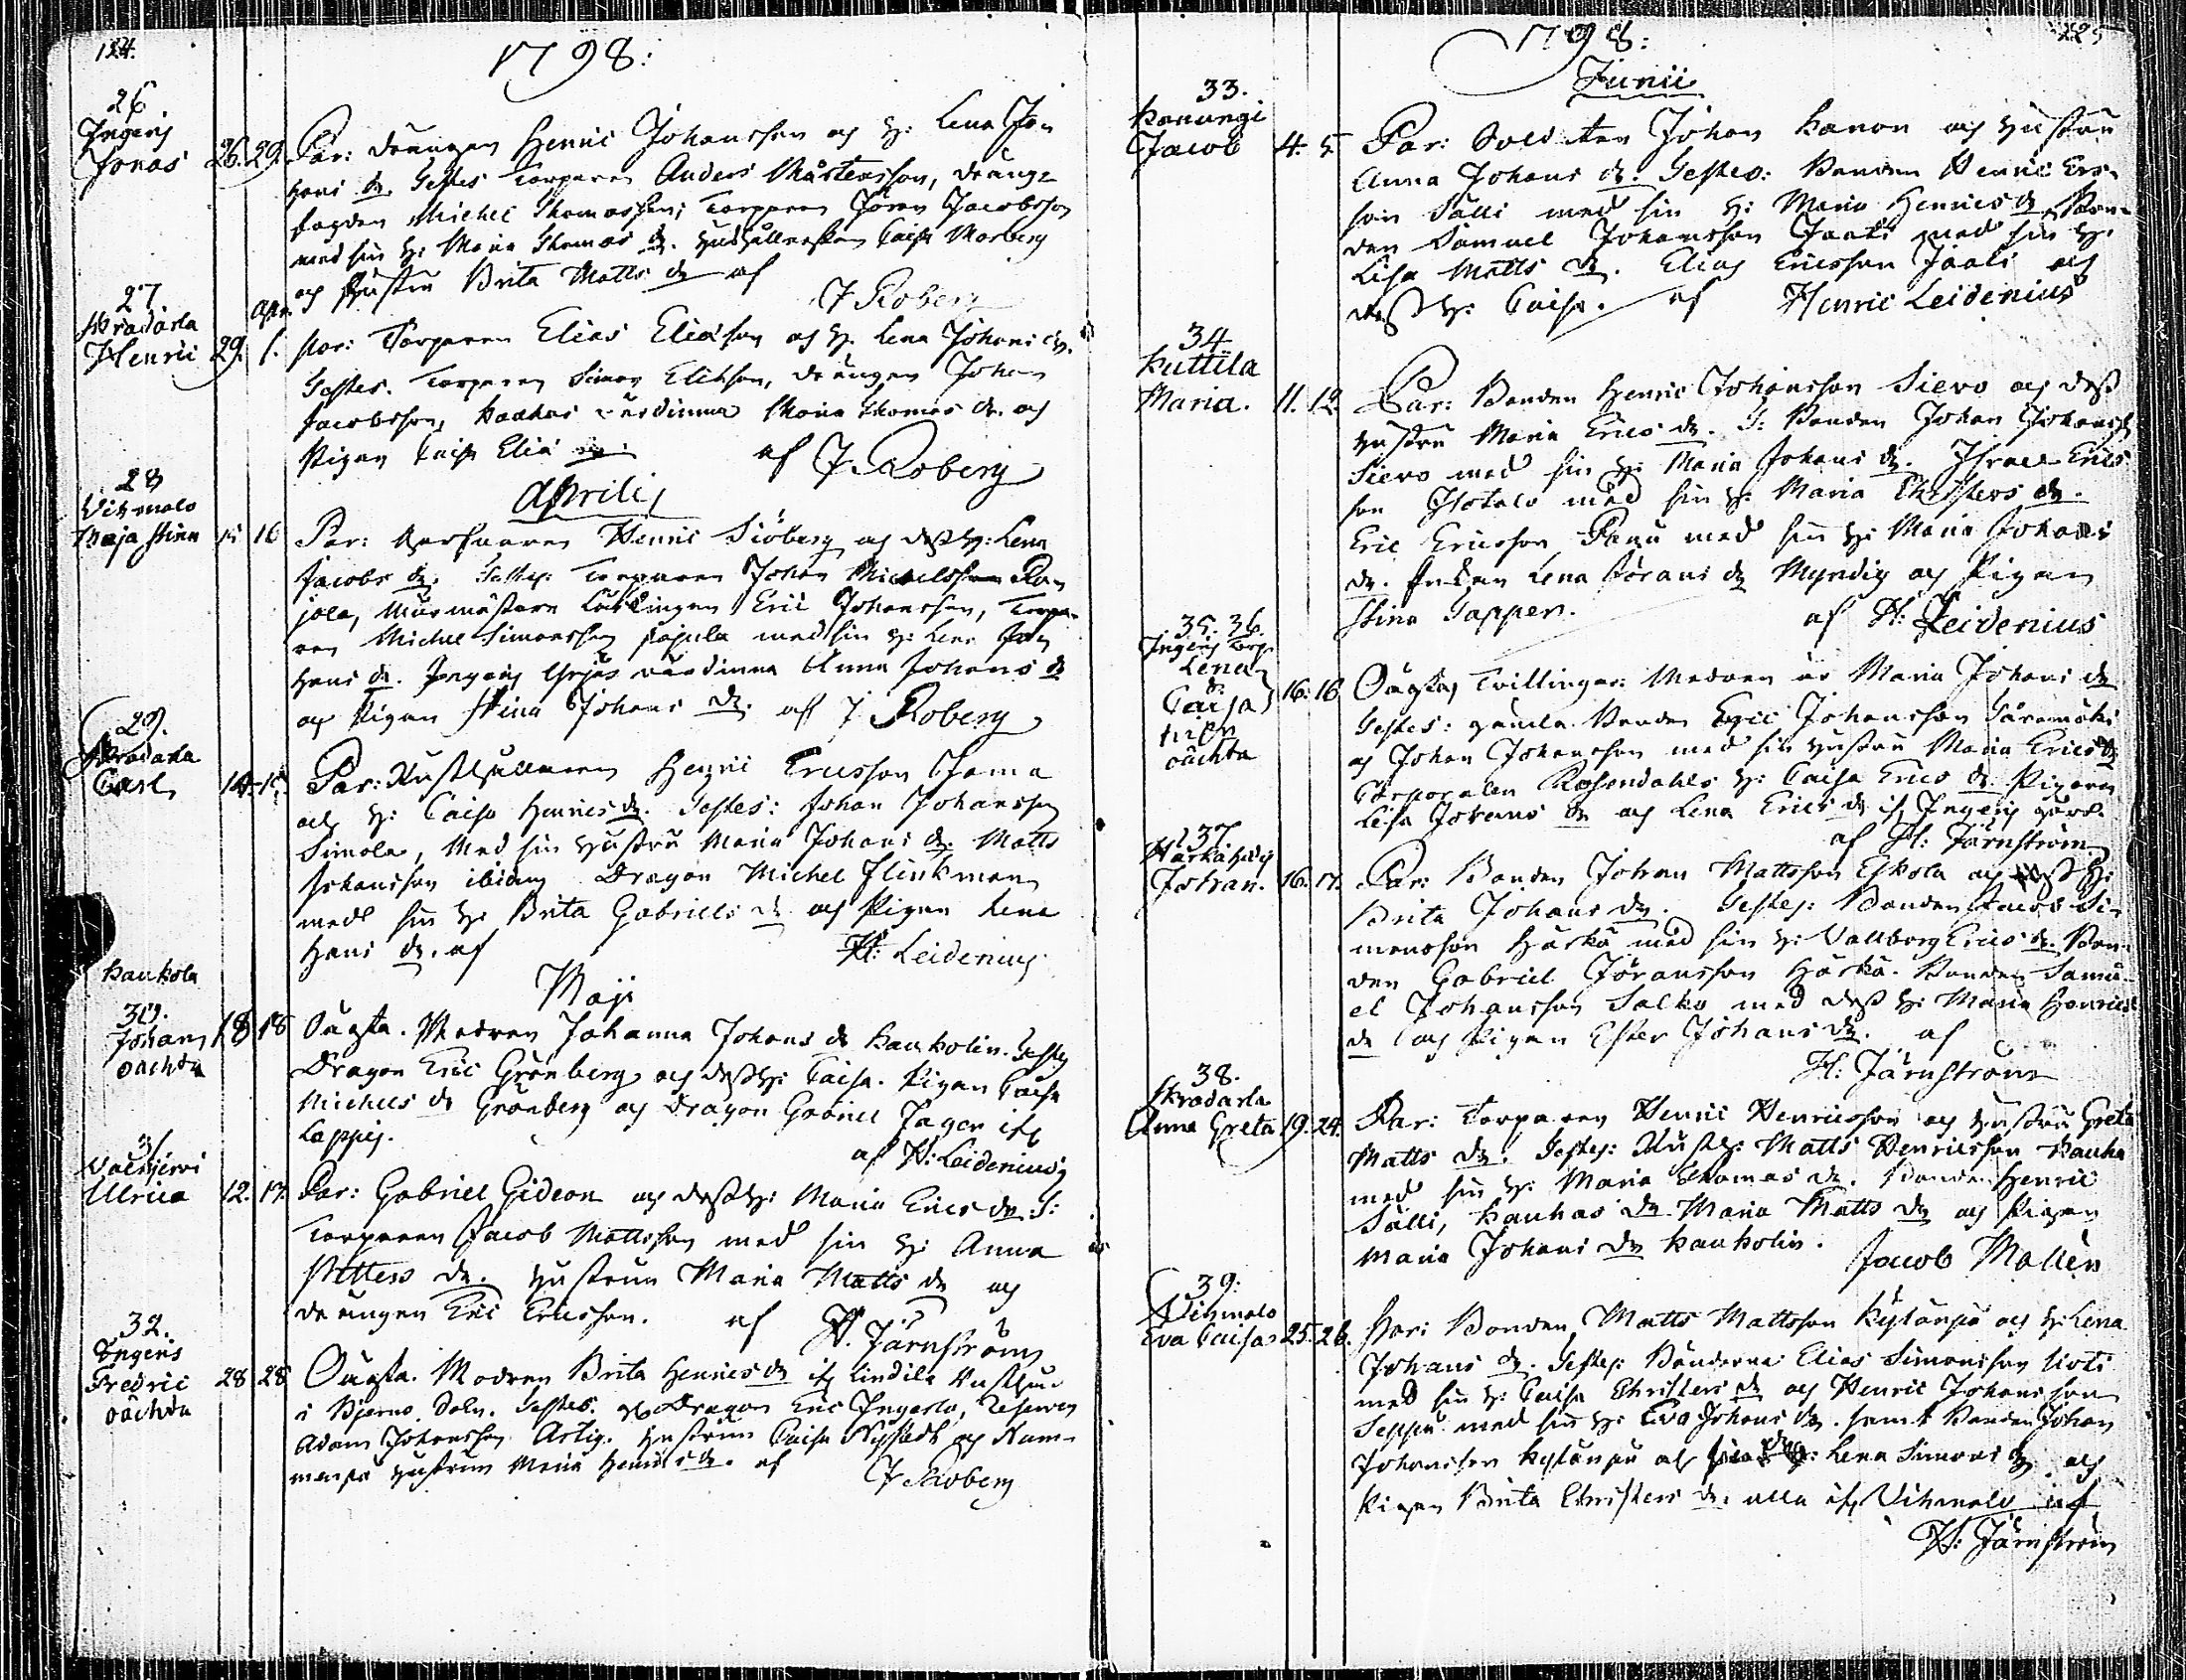 124.
1798:
26
Ingeris
Jonas 26. 29. Par: Drängen Henric Johansson och H: Lena Jo-
hans dr. Testes Torparen Anders Mårtensson, Dräng-
Michel Thomasson, Torparen Jöran Jacobsson
med sin H: Maria Thomas dr. Caisa Morberg
och Hustru Brita Matts dr af
J Roberg
27.
Skradarla
Apr.
Henric 29. 1. Par: Torparen Elias Eliasson och H. Lena Johans dr.
Testes. Torparen Simon Eliasson, Drängen Johan
Jacobsson, Kaukas värdinna Maria Thomas dr. och
Pigan Caisa Elia dr. af J. Roberg
Aprilis
28
Vihmalo
Maja Stina 15 16 Par: Henric Siöberg och dess H: Lena
Jacobs dr. Testes: Torparen Johan Michelsson
jola, Murmästare Lärlingen Eric Johansson, Torpa-
ren Michel Simonsson med sin H: Lena Jo-
hans dr. Ingeris Yrjäs värdinna Anna Johans dr
och Pigan Stina Johans dr. af J Roberg
29.
Skradarla
Carl 14. 15. Par: Rusthållaren Henric Ericsson Jama
och H: Caisa Henrics dr. Testes: Johan Johansson
Simola, Med sin Hustru Maria Johans dr. Matts
Johansson ibidem Dragon Michel Flinkman
med sin H: Brita Gabriels dr och Pigan Lena
Hans dr. af H: Leidenius
Maji
Kaukola
30.
Johan 18 18 Oägta. Modren Johanna Johans dr Kaukolin. Testes
oächta Dragon Eric Grönberg och dess H: Caisa. Pigan Caisa
Michels dr Grönberg och Dragon Gabriel Jager ifr
Lappis.
af H: Leidenius
31
Valkjervi
Ulrica 12. 17. Par: Gabriel Gideon och dess H: Maria Erics dr. T:
Torparen Jacob Mattsson med sin H: Anna
Petters dr. Hustrun Maria Matts dr och
Drängen Eric Ericsson. af H. Järnström
32.
Ingeris
Fredric 28 28 Oägta. Modren Brita Henrics dr ifr Lindila
oächta i Bjerno Sokn. Testes. Dragon Eric Ingerlo, Reserven
Adam Johansson Artig. Hustrun Caisa Nystedt och
Hustrun Maria Henrics dr. af J Roberg
1798:
225
Junii
33.
Kanungi
Jacob 4. 5. Par: Soldaten Johan Kanon och Hustru
Anna Johans dr. Testes: Bonden Henric Ers-
son Sälli med sin H: Maria Henrics dr Bon-
den Samuel Johansson Jaati med sin H:
Lisa Matts dr. Elias Ericsson Jaati och
dess H: Caisa. af Henric Leidenius
34
Kuttila
Maria. 11. 12. Par: Bonden Henric Johansson Sievo och dess
Hustru Maria Erics dr. T: Bonden Johan Johansson
Sievo med sin H: Maria Johans dr. Israel Erics-
son Isotalo med sin H: Maria Christers dr.
Eric Ericsson Panu med sin H: Maria Johans
dr. Enkan Lena Jörans dr Myndig och Pigan
Stina Tappen. af H: Leidenius
35. 36.
Ingeris Torp.
Lena
&
Caisa 16. 16 Oägta, Tvillingar: Modren är Maria Johans dr
oächta Testes: gamla Bonden Eric Johansson Säremäki
och Johan Johansson med sin Hustru Maria Erics dr
Corporalen Rosendahls H: Caisa Erics dr Pigorne
Lisa Johans dr och Lena Erics dr ifr Ingeris gård.
af H: Järnström
37.
Johan. 16. 17. Par: Bonden Johan Mattsson Eskola och dess H:
Brita Johans dr. Testes: Bonden Jacob Si-
monsson Härkä med sin H: Vallborg Erics dr. Bon-
den Gabriel Jöransson Härkä. Bonden Samu-
el Johansson Salko med dess H: Maria Henrics
dr och Pigan Ester Johans dr. af
H: Järnström
38.
Skradarla
Anna Greta 19. 24. Par: Torparen Henric Henricsson och Hustru Greta
Matts dr. Testes: Rusth: Matts Henricsson Kauha
med sin H: Maria Thomas dr. Bonden Henric
Sälli, Kauhas dr Maria Matts dr och Pigan
Maria Johans dr Kaukolin. Jacob Mollén
39:
Vihmalo
Eva Caisa 25. 26. Par: Bonden Matts Mattsson Kylänpä och H: Lena
Johans dr. Testes: Bönderne Elias Simonsson Uoti
med sin H: Caisa Christers dr och Henric Johansson
Seppä med sin H: Eva Johans dr. samt Bonden Johan
Johansson Kylänpä och H: Lena Simons dr och
Pigan Brita Christers dr. alla ifr Vihmalo af
H: Järnström